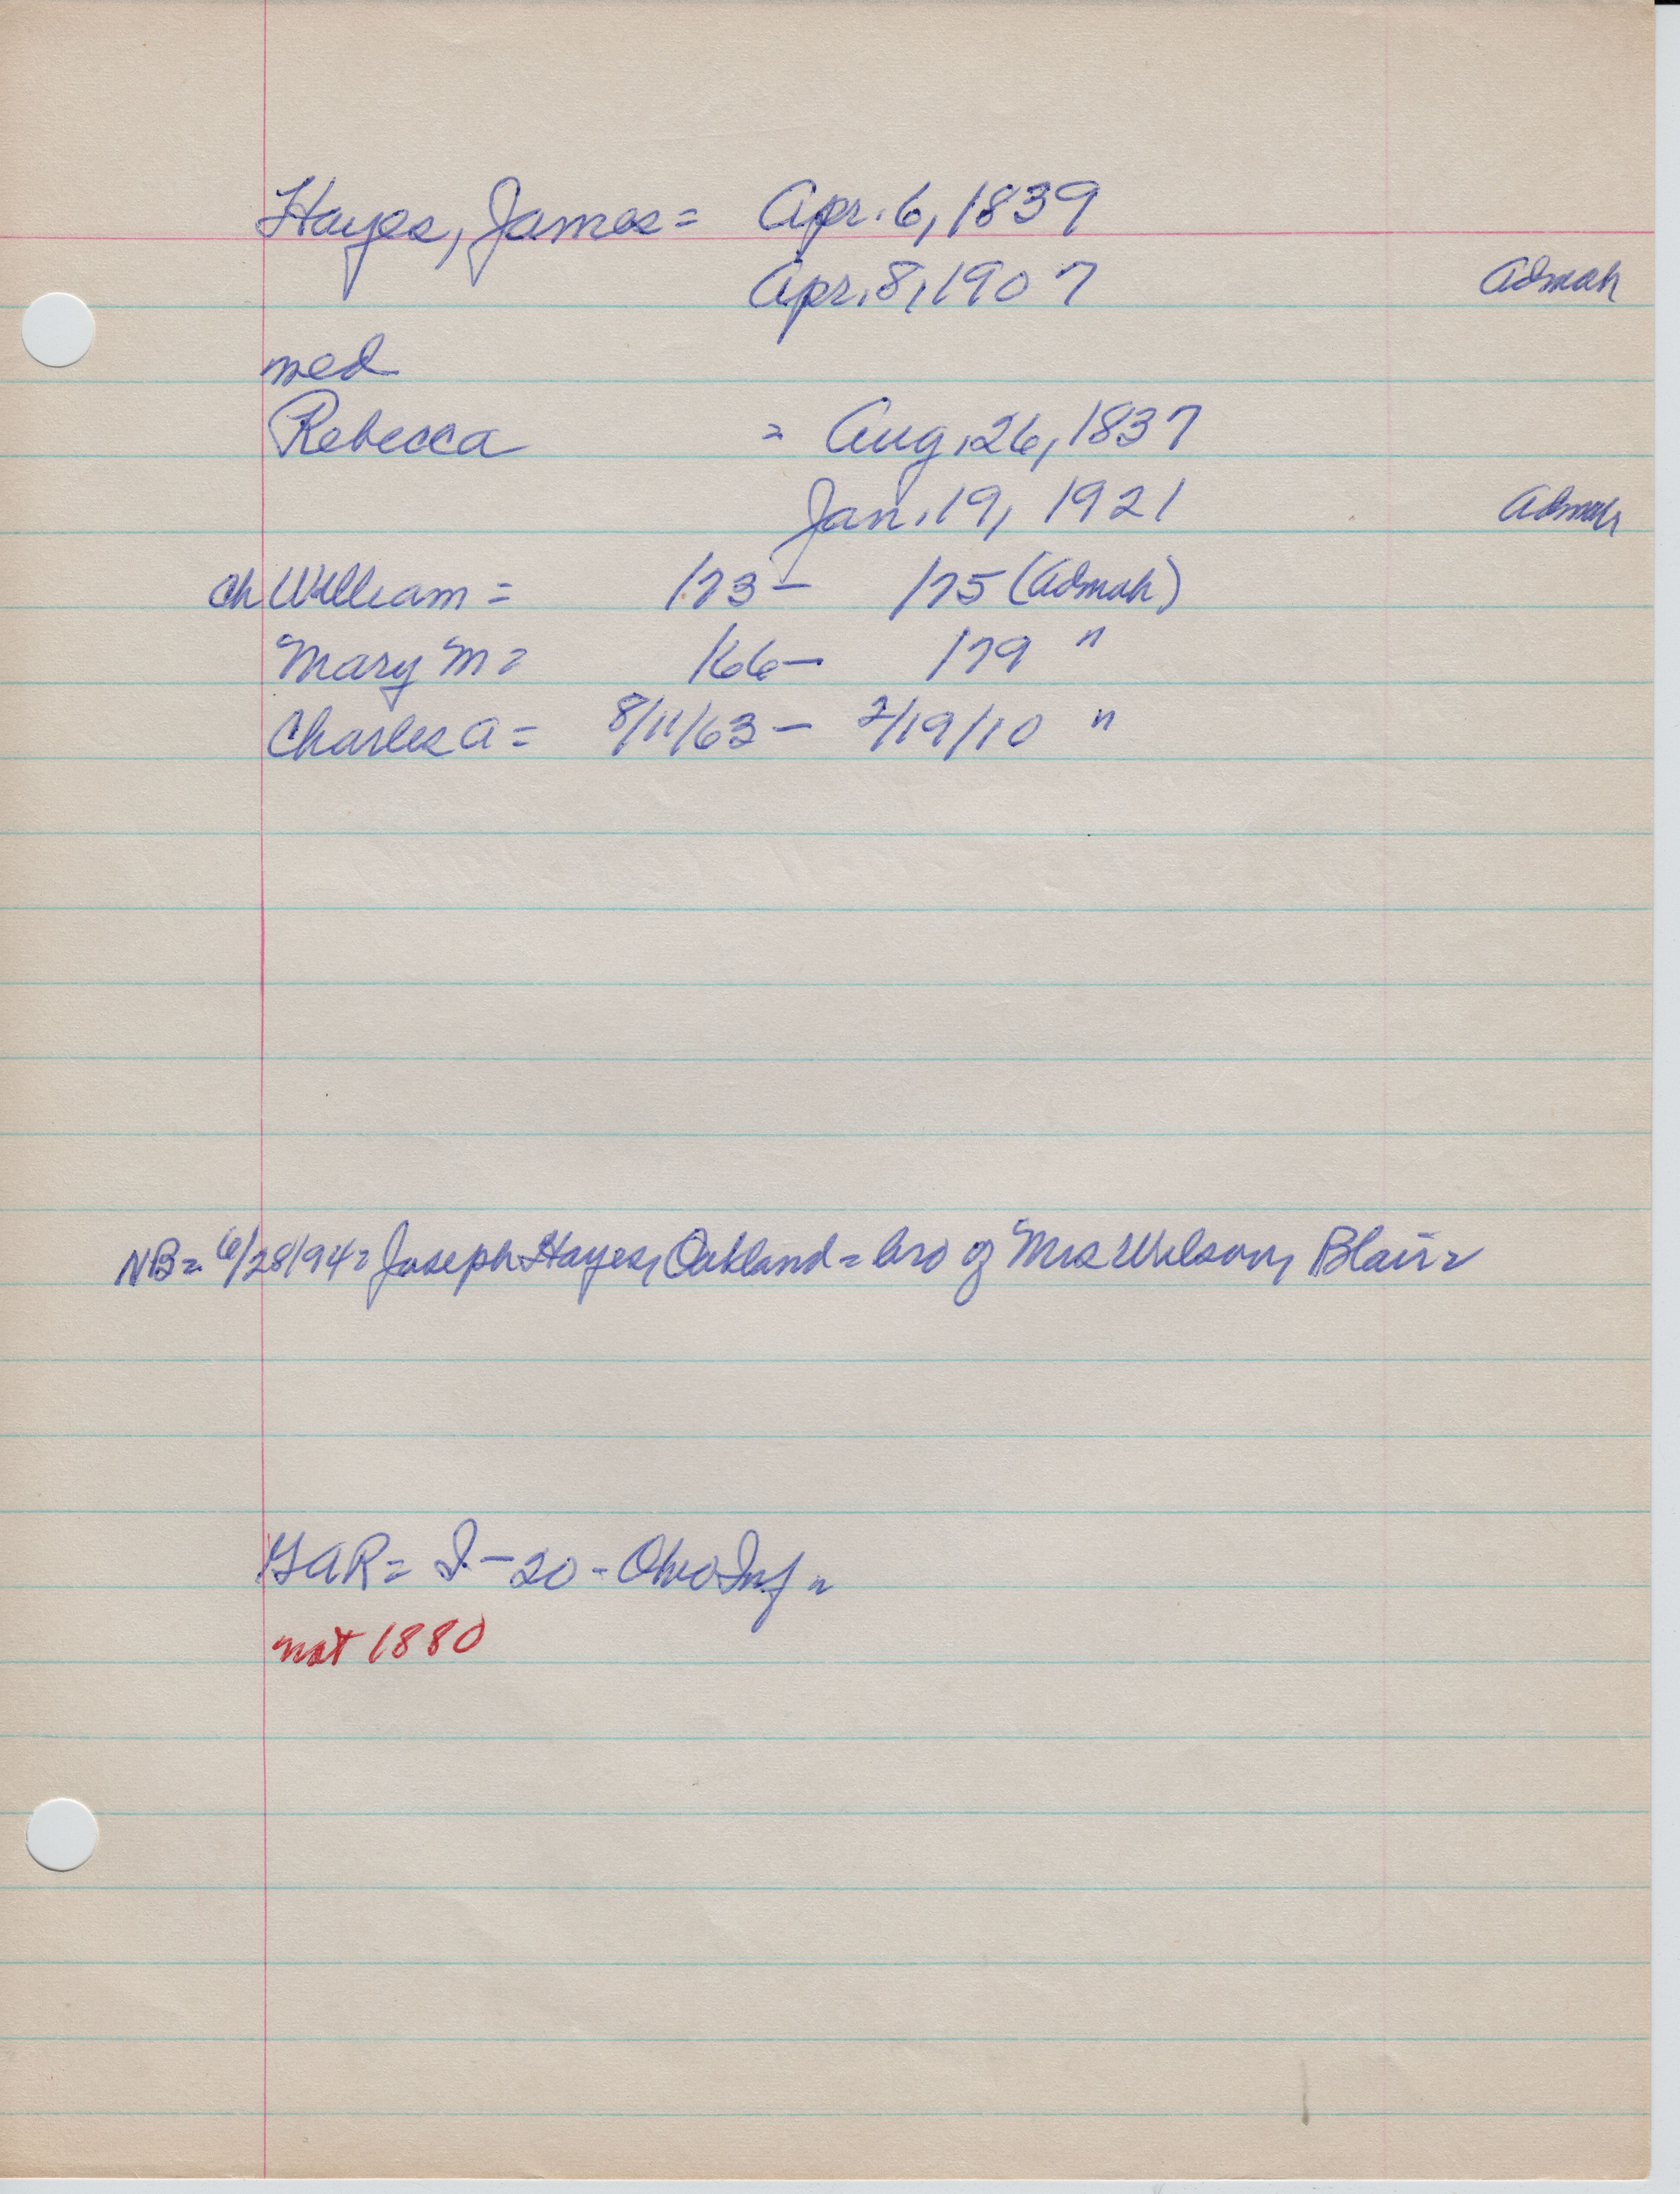 Hayes, James = Apr. 6, 1839
Apr. 8, 1907 Admah
med
Rebecca = Aug. 26, 1837
Jan. 19, 1921 Admah
ch William = /73 - /75 (Admah)
Mary M = /66 - /79 "
Charles A = 8/11/63 - 2/19/10 "
NB = 6/28/94 = Joseph Hayes, Oakland = bro of Mrs Wilson, Blair =
GAR = I - 20 - Ohio Inf =
not 1880